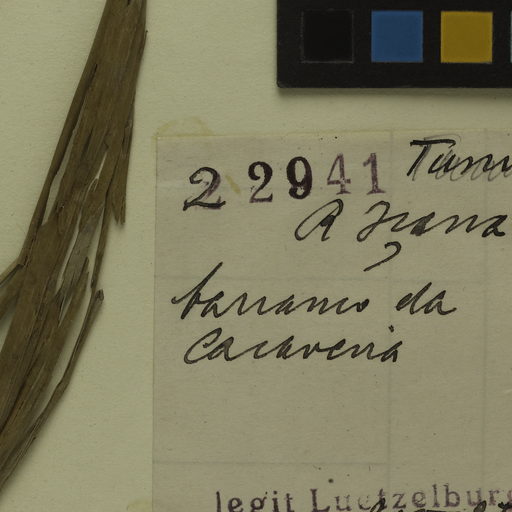 22941
R Içana
barranco da
Cacaveria
legit Luetzelburg